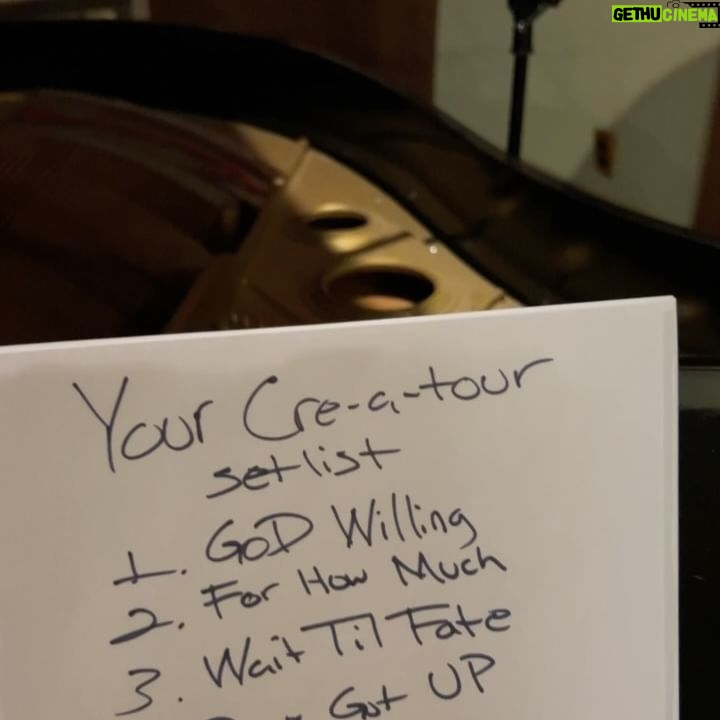 GETHUCINEMA
Your Cre-a-tour
setlist
1. GOD Willing
2. For How Much
3. Wait Til Fate
Got UP